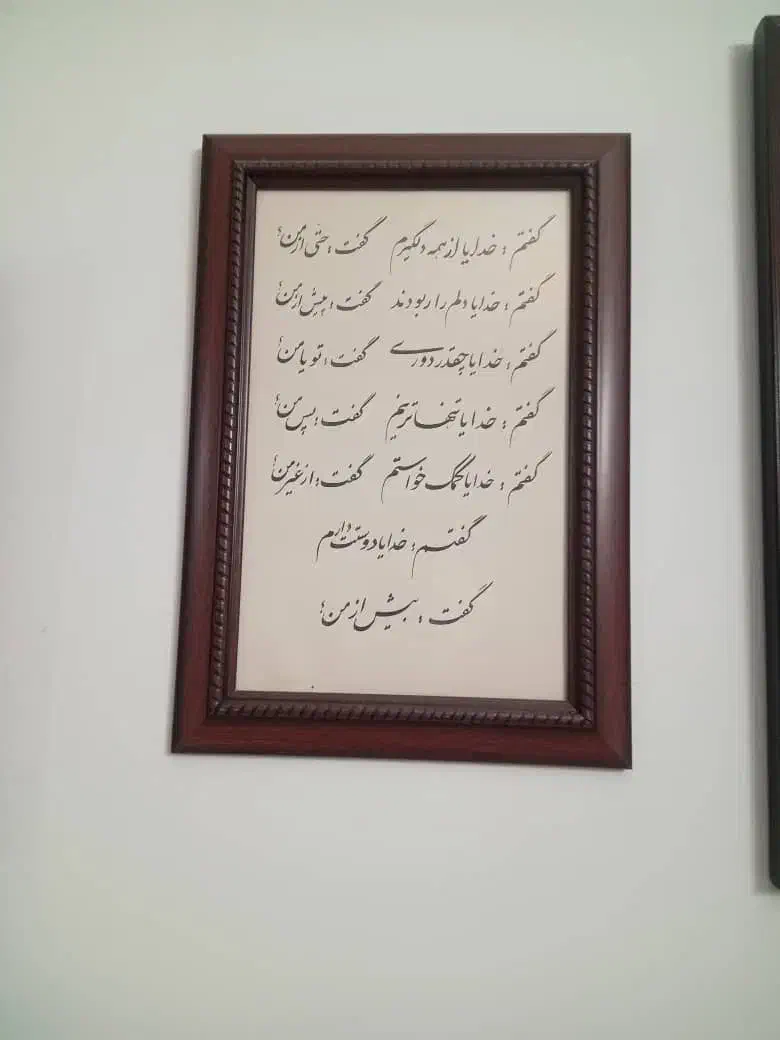 گفتم: خدایا از همه دلگیرم گفت: حتی از من؟
گفتم: خدایا دلم را ربودند گفت: پیش از من؟
گفتم: خدایا چقدر دوری گفت: تو یا من؟
گفتم: خدایا تنهاترینم گفت: پس من؟
گفتم: خدایا کمک خواستم گفت: از غیر من؟
گفتم: خدایا دوستت دارم
گفت: بیش از من؟